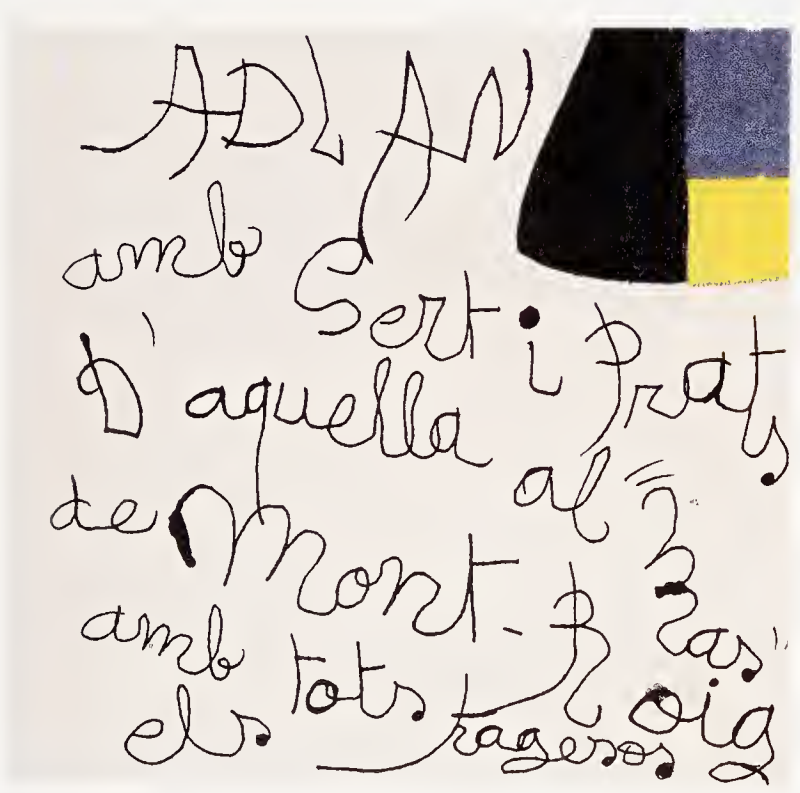 ADLAN
amb Sert i Prats
D'aquella al "Mas"
de Mont-Roig
amb tots
els